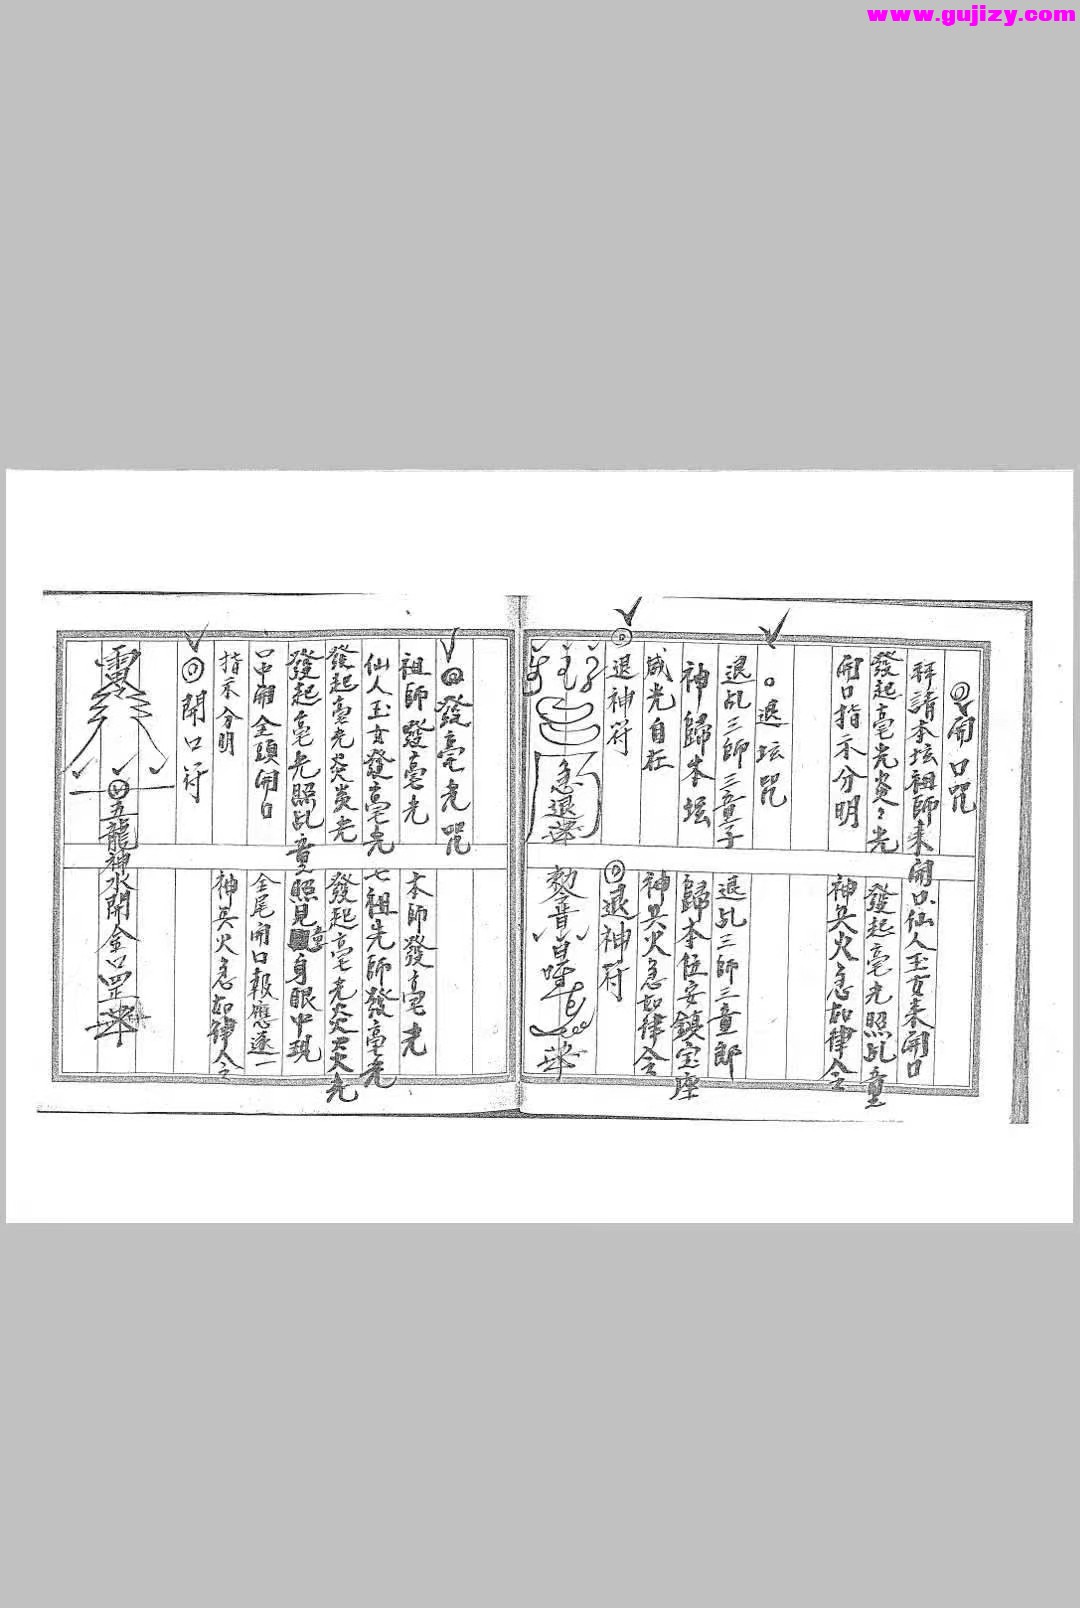 www.gujizy.com
開口咒
拜請本坛祖師来開口仙人玉女来開口
發起毫光炎々光 發起毫光照乩童
開口指示分明 神兵火急如律令
退坛咒
退乩三師三童子 退乩三師三童郎
神歸本坛 歸本位安鎮宝座
威光自在 神兵火急如律令
退神符 退神符
急退
發毫光咒
祖師發毫光 本師發毫光
仙人玉女發毫光七祖先師發毫光
發起毫光炎炎光 發起毫光炎炎光
發起毫光照乩童照見童身眼中現
口中開金頭開口 金尾開口報應逐一
指示分明 神兵火急如律令
開口符
靈
五龍神水開金口罡